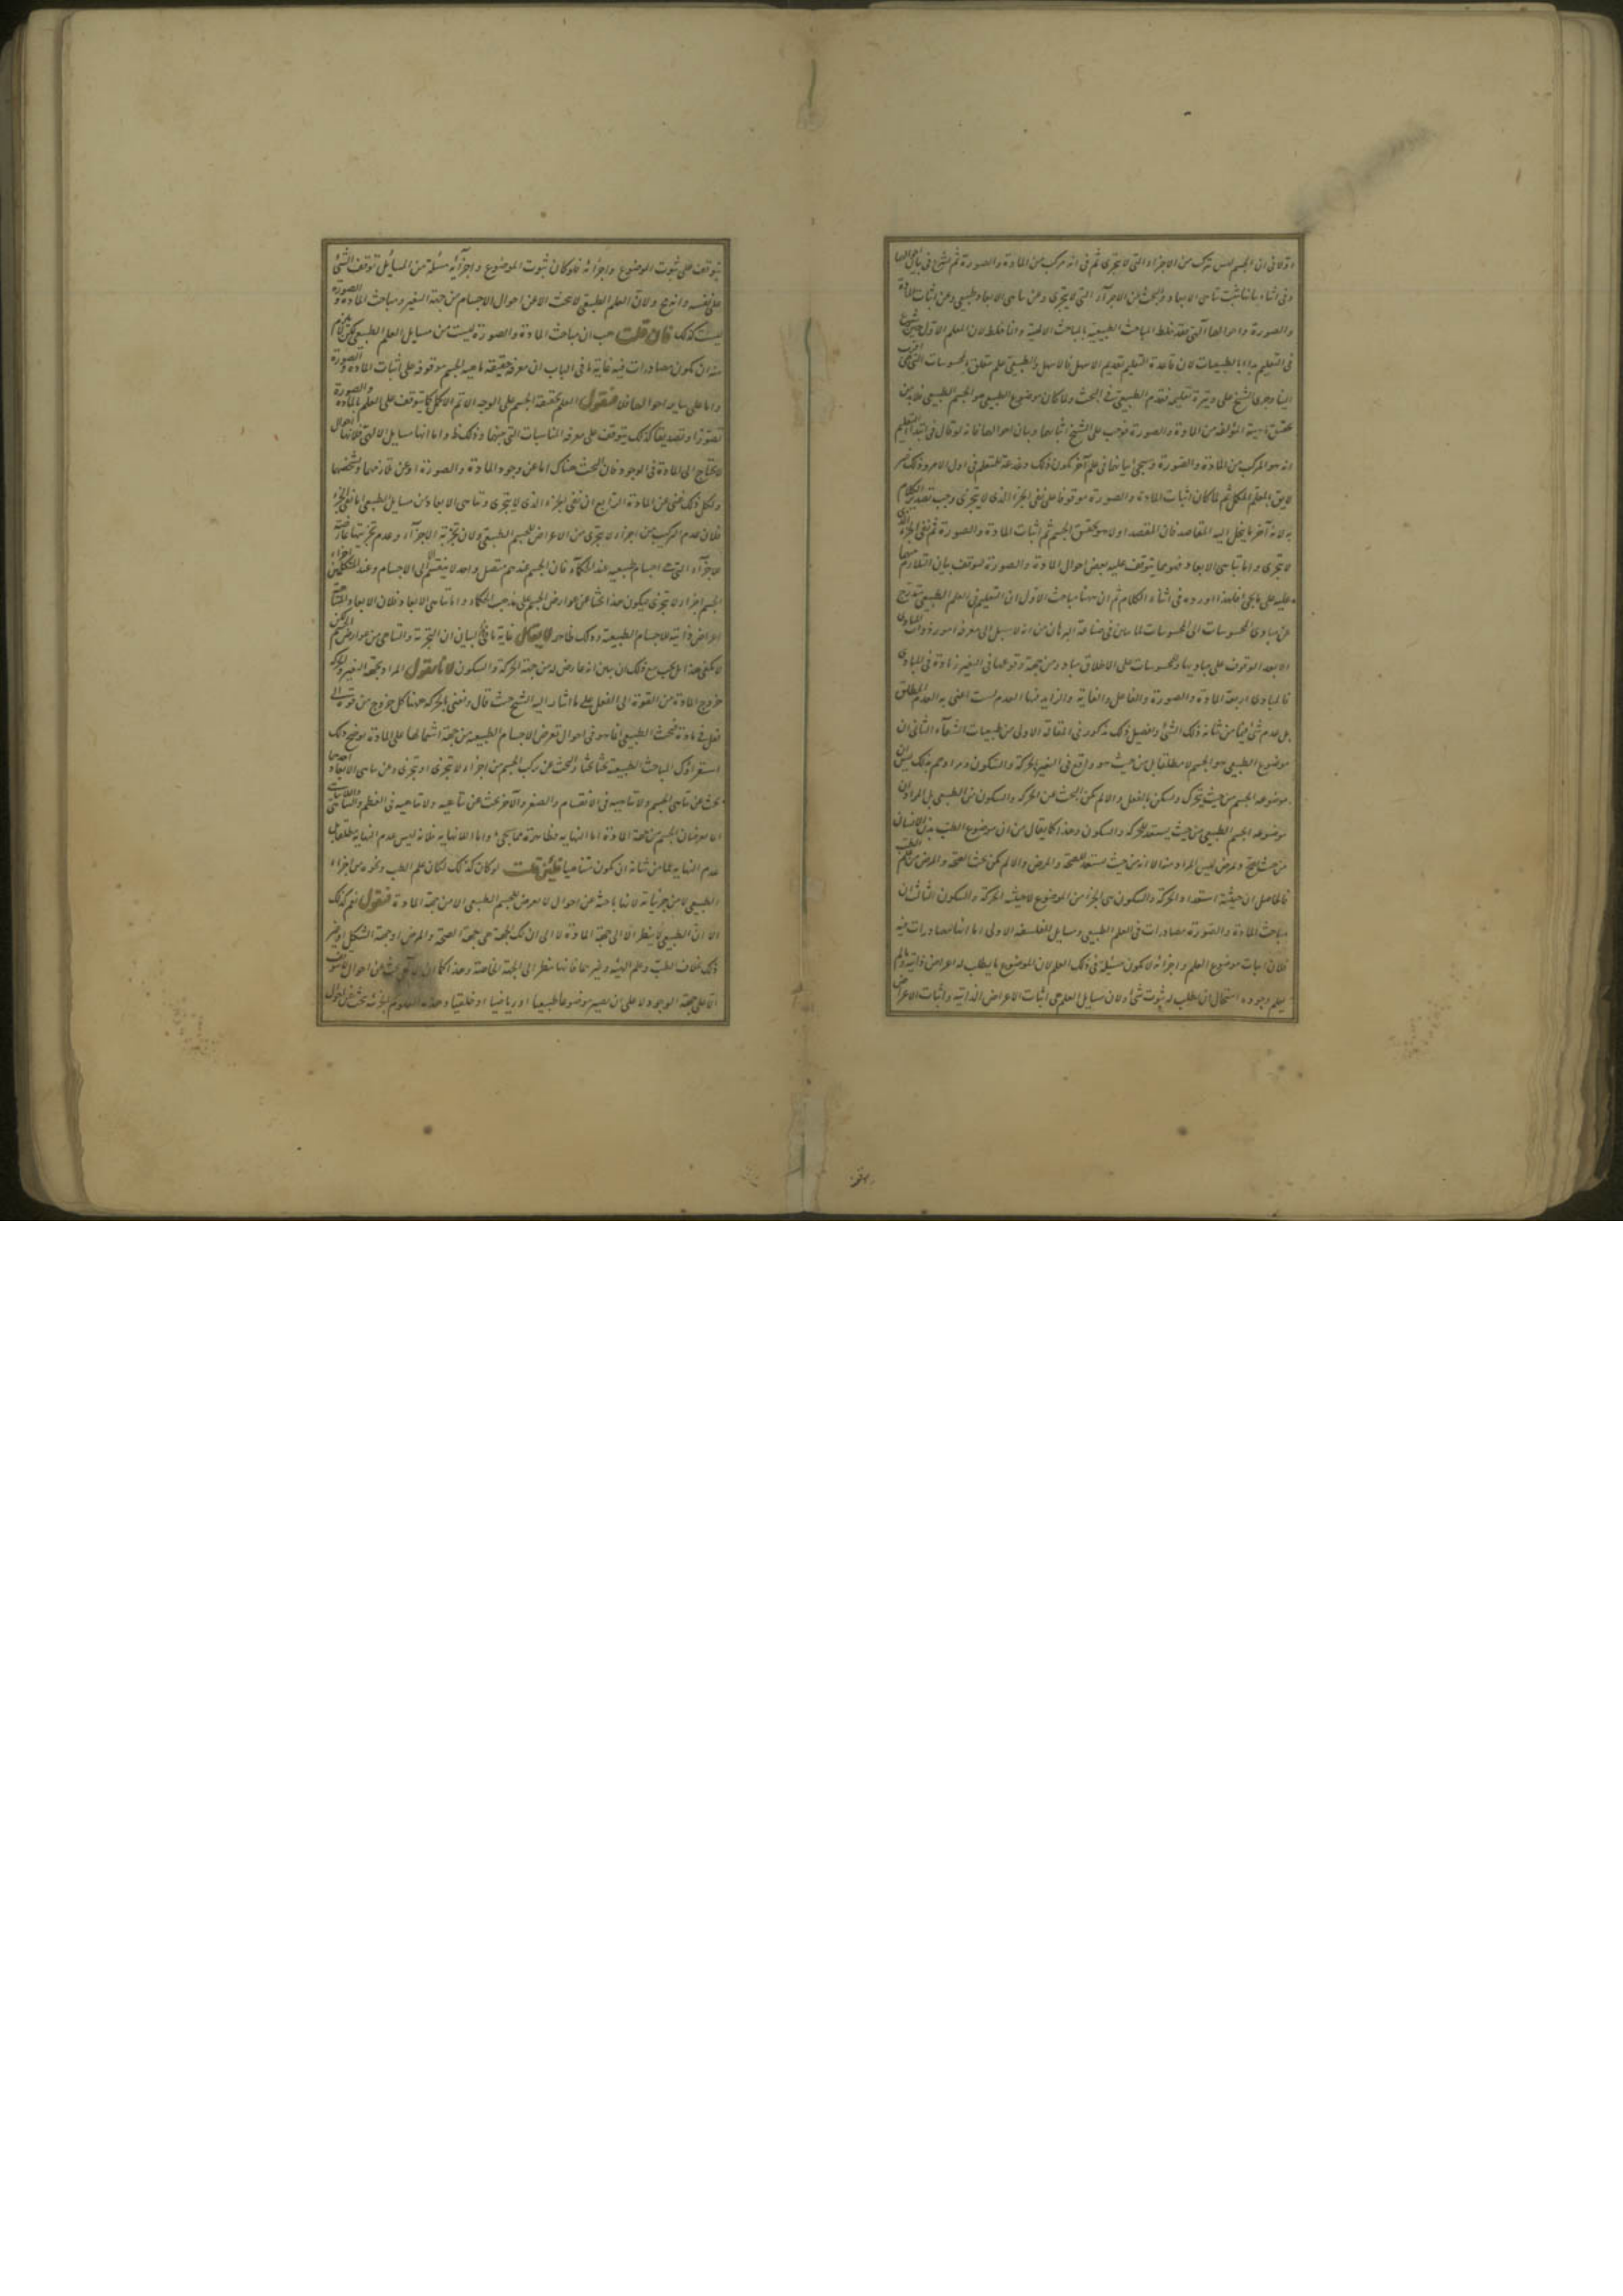 اولا فى ان الجسم ليس مركب من الاجزاء التى لا يتجزى ثم فى انه مركب من المادة والصورة ثم شرع فى بيان احوالها
وفى اثناء بيانها يثبت تناهى الابعاد والبحث عن الاجزاء التى لا يتجزى وعن تناهى الابعاد طبيعى وعن اثبات المادة
والصورة واحوالهما الهى فقد خلط المباحث الطبيعية بالمباحث الالهية وانما خلط لان المعلم الاول حين شرع
فى التعليم بدا بالطبيعيات لان قاعدة التعليم تقديم الاسهل فالاسهل والطبيعى علم متعلق بالمحسوسات التى هى اقرب
الينا وجرى الشيخ على وتيرة تعليمه فقدم الطبيعى فى البحث ولما كان موضوع الطبيعى هو الجسم الطبيعى فلا بد من
تحقيق ماهيته المؤلفة من المادة والصورة فوجب على الشيخ اثباتهما وبيان احوالهما فانه لو قال فى ابتداء التعليم
انه هو المركب من المادة والصورة وسيجئ بيانهما فى علم آخر يكون ذلك دغدغة للمتعلم فى اول الامر وذلك غير
لايق بالمعلم الحكيم ثم لما كان اثبات المادة والصورة موقوفا على نفى الجزء الذى لا يتجزى وجب تصدير الكلام
به لانه آخر ما ينحل اليه المقاصد فان المقصد اولا هو تحقيق الجسم ثم اثبات المادة والصورة ثم نفى الجزء الذى
لا يتجزى واما تناهى الابعاد فهو مما يتوقف عليه بعض احوال المادة والصورة لتوقف بيان التلازم بينهما
عليه على ما يجئ فلهذا اورده فى اثناء الكلام ثم ان ههنا مباحث الاول ان التعليم فى العلم الطبيعى يتدرج
من مبادى المحسوسات الى المحسوسات لما تبين فى صناعة البرهان من انه لا سبيل الى معرفة امور ذوات المبادى
الا بعد الوقوف على مباديها وللمحسوسات على الاطلاق مباد ومن جهة وقوعها فى التغير زيادة فى المبادى
فالمبادى اربعة المادة والصورة والفاعل والغاية والزايد فيها العدم لست اعنى به العدم المطلق
بل عدم شئ عما من شانه ذلك الشئ وتفصيل ذلك مذكور فى المقالة الاولى من طبيعيات الشفاء الثانى ان
موضوع الطبيعى هو الجسم لا مطلقا بل من حيث هو واقع فى التغير بالحركة والسكون ومرادهم بذلك ليس ان
موضوعه الجسم من حيث يتحرك ويسكن بالفعل والا لم يكن البحث عن الحركة والسكون من الطبيعى بل المراد ان
موضوعه الجسم الطبيعى من حيث يستعد للحركة والسكون وهذا كما يقال من ان موضوع الطب بدن الانسان
من حيث يصح ويمرض ليس المراد منه الا انه من حيث مستعد للصحة والمرض والا لم يكن بحث الصحة والمرض من علم الطب
فالحاصل ان حيثية استعداد الحركة والسكون هى الجزء من الموضوع لا حيثية الحركة والسكون الثالث ان
مباحث المادة والصورة مصادرات فى العلم الطبيعى ومسايل للفلسفة الاولى اما انها مصادرات فيه
فلان اثبات موضوع العلم واجزائه لا يكون مسئلة فى ذلك العلم لان الموضوع ما يطلب له اعراض ذاتية وما لم
يعلم وجوده استحال ان يطلب له ثبوت شئ ولان مسايل العلم هى اثبات الاعراض الذاتية واثبات الاعراض
يتوقف على ثبوت الموضوع واجزائه فلو كان ثبوت الموضوع واجزائه مسئلة من المسايل توقف الشئ
على نفسه وانه مح ولان العلم الطبيعى لا يبحث الا عن احوال الاجسام من جهة التغير ومباحث المادة والصورة
ليست كذلك فان قلت هب ان مباحث المادة والصورة ليست من مسايل العلم الطبيعى لكن لم يلزم
منه ان يكون مصادرات فيه غاية ما فى الباب ان معرفة حقيقة ماهية الجسم موقوفة على اثبات المادة والصورة
واما على ساير احوالهما فلا فنقول العلم بحقيقة الجسم على الوجه الاتم الاكمل كما يتوقف على العلم بالمادة والصورة
تصورا وتصديقا كذلك يتوقف على معرفة المناسبات التى بينهما وذلك ظ واما انها مسايل الالهى فلانها احوال
لا يحتاج الى المادة فى الوجود فان البحث هناك اما عن وجود المادة والصورة او عن تلازمهما وتشخصهما
ولكل ذلك غنى عن المادة الرابع ان نفى الجزء الذى لا يتجزى وتناهى الابعاد من مسايل الطبيعى اما نفى الجزء
فلان عدم التركب من اجزاء لا يتجزى من الاعراض للجسم الطبيعى ولان تجزية الاجزاء وعدم تجزيتها عارضة
لاجزاء التى هى اجسام طبيعية عند الحكماء فان الجسم عندهم متصل واحد لا ينقسم الا الى الاجسام وعند المتكلمين اجزاء
الجسم اجزاء لا يتجزى فيكون هذا بحثا عن عوارض الجسم على مذهب الحكماء واما تناهى الابعاد فلان الابعاد المتناهية
اعراض ذاتية للاجسام الطبيعية وذلك ظاهر لا يقال غاية ما فى البيان ان التجزية والتناهى من عوارض الجسم لكن
لا يكفى هذا بل يجب مع ذلك ان يبين انه عارض له من جهة الحركة والسكون لانا نقول المراد بجهة التغير والحركة
خروج المادة من القوة الى الفعل على ما اشار اليه الشيخ حيث قال ونعنى بالحركة ههنا كل خروج من قوة الى
فعل فى مادة فبحث الطبيعى انما هو فى احوال تعرض للاجسام الطبيعية من جهة اشتمالها على المادة يوضح ذلك
استقراؤك المباحث الطبيعية بحثا بحثا والبحث عن تركب الجسم من اجزاء لا تتجزى او تتجزى وعن تناهى الابعاد احدهما
بحث عن تناهى الجسم ولا تناهيه فى الانقسام والصغر والآخر بحث عن تناهيه ولا تناهيه فى العظم والتناهى واللاتناهى
انما يعرضان للجسم من جهة المادة اما النهاية فظاهرة مما يجئ واما اللانهاية فلانه ليس عدم النهاية مطلقا بل
عدم النهاية عما من شانه ان يكون متناهيا فلئن قلت لو كان كذلك لكان علم الطب ونحوه من اجزاء
الطبيعى لا من جزئياته لانها باحثة عن احوال لا تعرض للجسم الطبيعى الا من جهة المادة فنقول نعم كذلك
الا ان الطبيعى لا ينظر الا الى جهة المادة لا الى ان تلك الجهة هى جهة الصحة والمرض او جهة الشكل او غير
ذلك بخلاف الطب وعلم الهيئة وغيرهما فانها ينظر الى الجهة الخاصة وهذا كما ان الالهى يبحث عن احوال
الا على جهة الوجود لا على ان يصير موضوعا طبيعيا او رياضيا او خلقيا وهذه العلوم الجزئية يبحث عن احوال